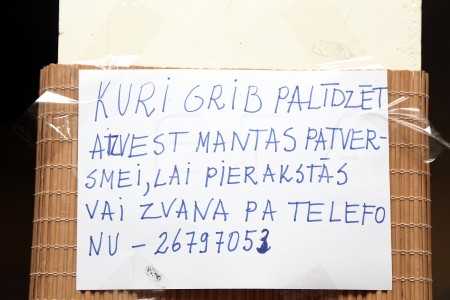 KURI GRIB PALĪDZĒT
AIZVEST MANTAS PATVER-
SMEI, LAI PIERAKSTĀS
VAI ZVANA PA TELEFO
NU – 26797053